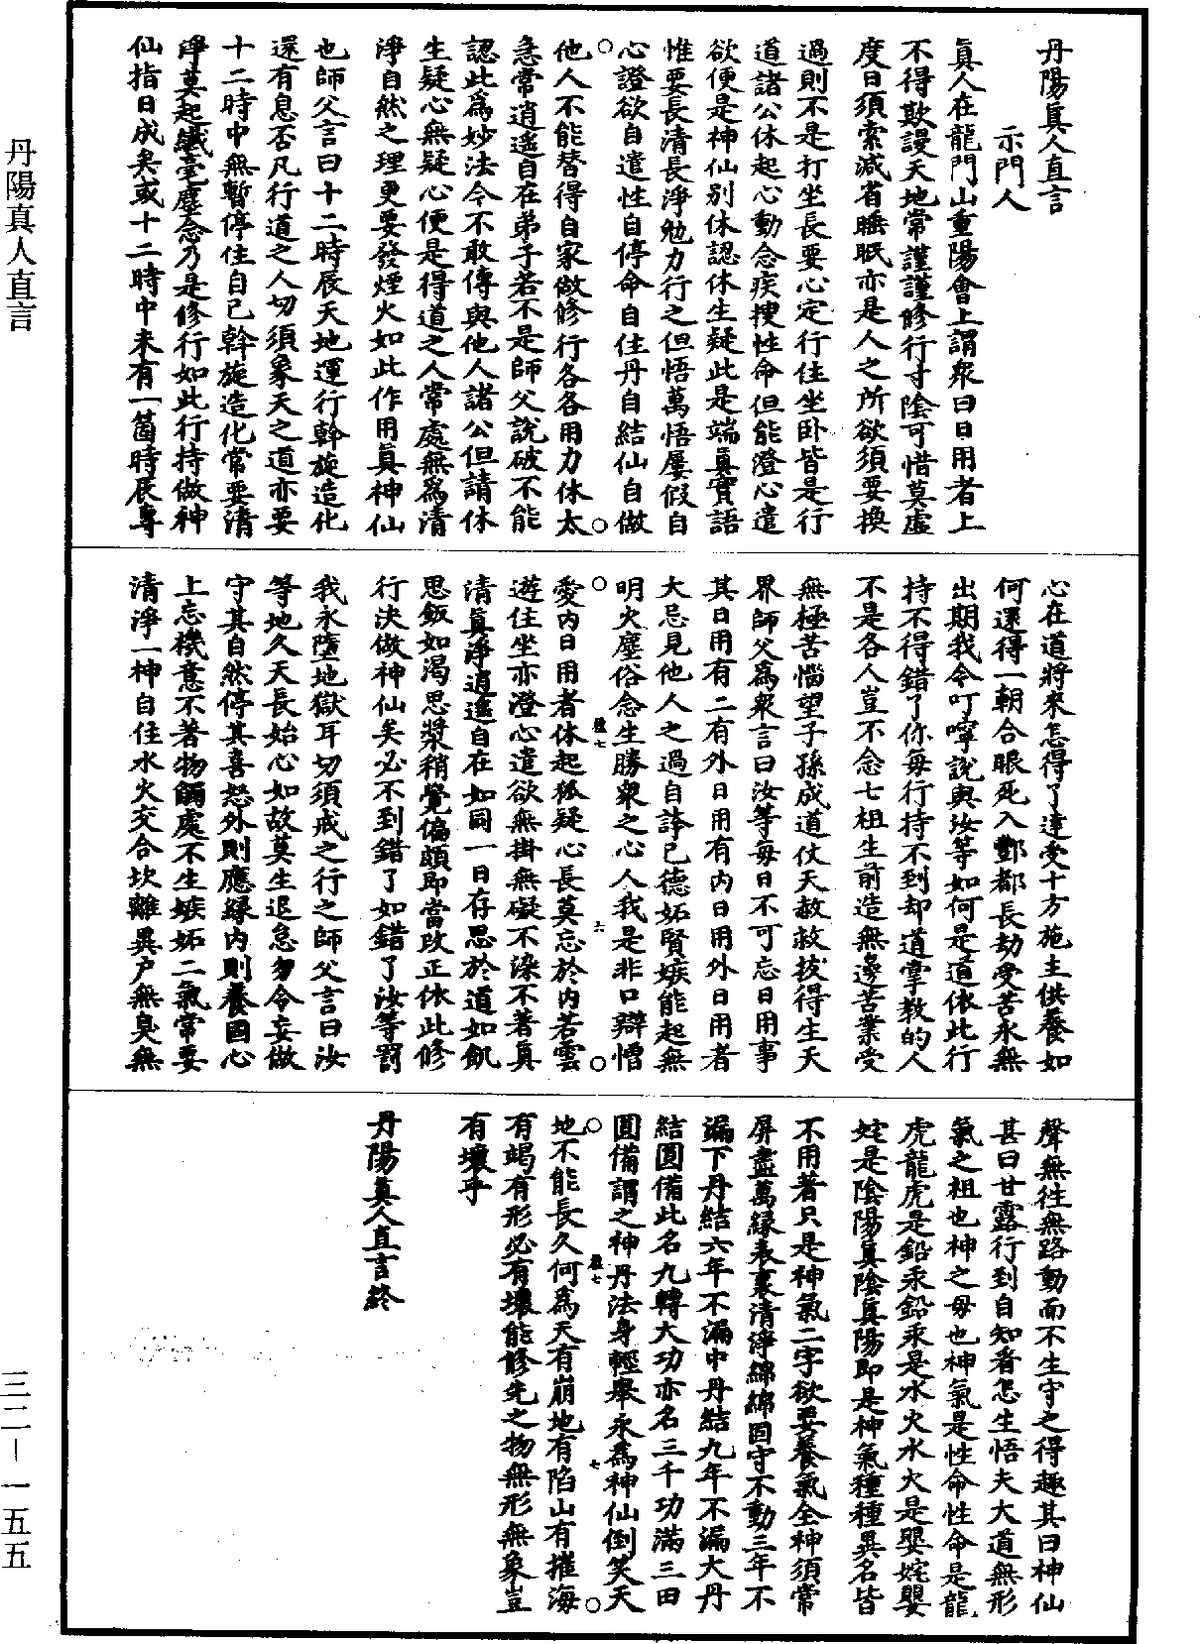 丹陽真人直言
丹陽真人直言
示門人
真人在龍門山重陽會上謂衆曰日用者上
不得欺謾天地常謹謹修行寸陰可惜莫虛
度日須索減省睡眠亦是人之所欲須要換
過則不是打坐長要心定行住坐卧皆是行
道諸公休起心動念疾搜性命但能澄心遣
欲便是神仙别休認休生疑此是端真實語
惟要長清長淨勉力行之但悟萬悟屢假自
心證欲自遣性自停命自住丹自結仙自做
他人不能替得自家做修行各各用力休太
急常逍遙自在弟子若不是師父說破不能
認此為妙法今不敢傳與他人諸公但請休
生疑心無疑心便是得道之人常處無為清
淨自然之理更要發煙火如此作用真神仙
也師父言曰十二時辰天地運行斡旋造化
還有息否凡行道之人切須象天之道亦要
十二時中無暫停住自已斡旋造化常要清
淨莫起纖毫塵念乃是修行如此行持做神
仙指日成矣或十二時中未有一箇時辰專
心在道將來怎得了達受十方施主供養如
何還得一朝合眼死入酆都長劫受苦永無
出期我今叮嚀說與汝等如何是道依此行
持不得錯了你每行持不到却道掌教的人
不是各人豈不念七祖生前造無邊苦業受
無極苦惱望子孫成道仗天赦救拔得生天
界師父為衆言曰汝等每日不可忘日用事
其日用有二有外日用有内日用外日用者
大忌見他人之過自誇已德妬賢嫉能起無
明火塵俗念生勝衆之心人我是非口辯憎
愛内日用者休起狐疑心長莫忘於内若雲
遊住坐亦澄心遣欲無掛無礙不染不著真
清真淨逍遙自在如同一日存思於道如飢
思飯如渴思漿稍覺偏頗即當改正依此修
行決做神仙矣必不到錯了如錯了汝等罰
我永墮地獄耳切須戒之行之師父言曰汝
等地久天長始心如故莫生退怠勿令妄做
守其自然停其喜怒外則應緣内則養固心
上忘機意不著物觸處不生嫉妬二氣常要
清淨一神自住水火交合坎離異户無臭無
聲無往無路動而不生守之得趣其曰神仙
甚曰甘露行到自知看怎生悟夫大道無形
氣之祖也神之母也神氣是性命性命是龍
虎龍虎是鉛汞鉛汞是水火水火是嬰姹嬰
姹是陰陽真陰真陽即是神氣種種異名皆
不用著只是神氣二字欲要養氣全神須常
屏盡萬緣表裏清淨綿綿固守不動三年不
漏下丹結六年不漏中丹結九年不漏大丹
結圓備此名九轉大功亦名三千功滿三田
圓備謂之神丹法身輕舉永為神仙倒笑天
地不能長久何為天有崩地有陷山有摧海
有竭有形必有壞能修先之物無形無象豈
有壞乎
丹陽真人直言終
三二—一五五